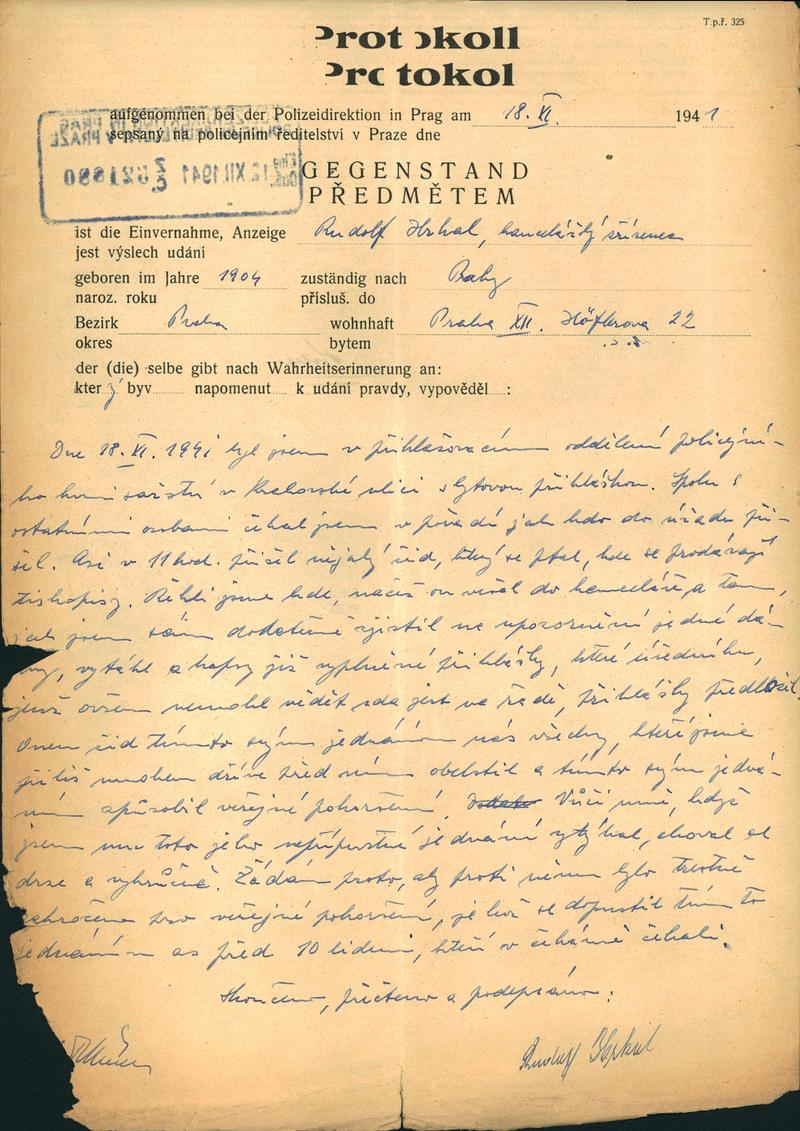 T.p.ř. 325
Protokoll
Protokol
aufgenommen bei der Polizeidirektion in Prag am 18. XI. 1941
sepsaný na policejním ředitelství v Praze dne
GEGENSTAND
PŘEDMĚTEM
ist die Einvernahme, Anzeige Rudolf Hrkal, kancelářský
jest výslech udání
geboren im Jahre 1904 zuständig nach Prahy
naroz. roku přísluš. do
Bezirk Praha wohnhaft Praha XII. 22
okres bytem
der (die) selbe gibt nach Wahrheitserinnerung an:
který byv napomenut k udání pravdy, vypověděl :
Dne 18. XI. 1941 byl jsem v přihlašovacím oddělení policejní-
ho komisařství v Krakovské ulici s bytovou přihláškou. Spolu s
ostatními osobami čekal jsem v pořadí jak kdo do úřadu při-
šel. Asi v 11 hod. přišel nějaký žid, který se ptal, kde se prodávají
tiskopisy. Řekli jsme kde, načež on vešel do kanceláře a tam,
jak jsem sám dodatečně zjistil na upozornění jedné dá-
my, vytáhl z kapsy již vyplněné přihlášky, které úředníku,
jenž ovšem nemohl vědět zda jest na řadě, přihlášky předložil.
Onen žid tímto svým jednáním nás všechny, kteří jsme
přišli mnohem dříve před ním obelstil a tímto svým jedná-
ním způsobil veřejné pohoršení. Vůči mně, když
jsem mu toto jeho nepřípustné jednání vytýkal, choval se
drze a výhružně. Žádám proto, aby proti němu bylo trestně
zakročeno pro veřejné pohoršení, jehož se dopustil tímto
jednáním as před 10 lidmi, kteří v čekárně čekali.
Skončeno, přečteno a podepsáno:
Rudolf Hrkal